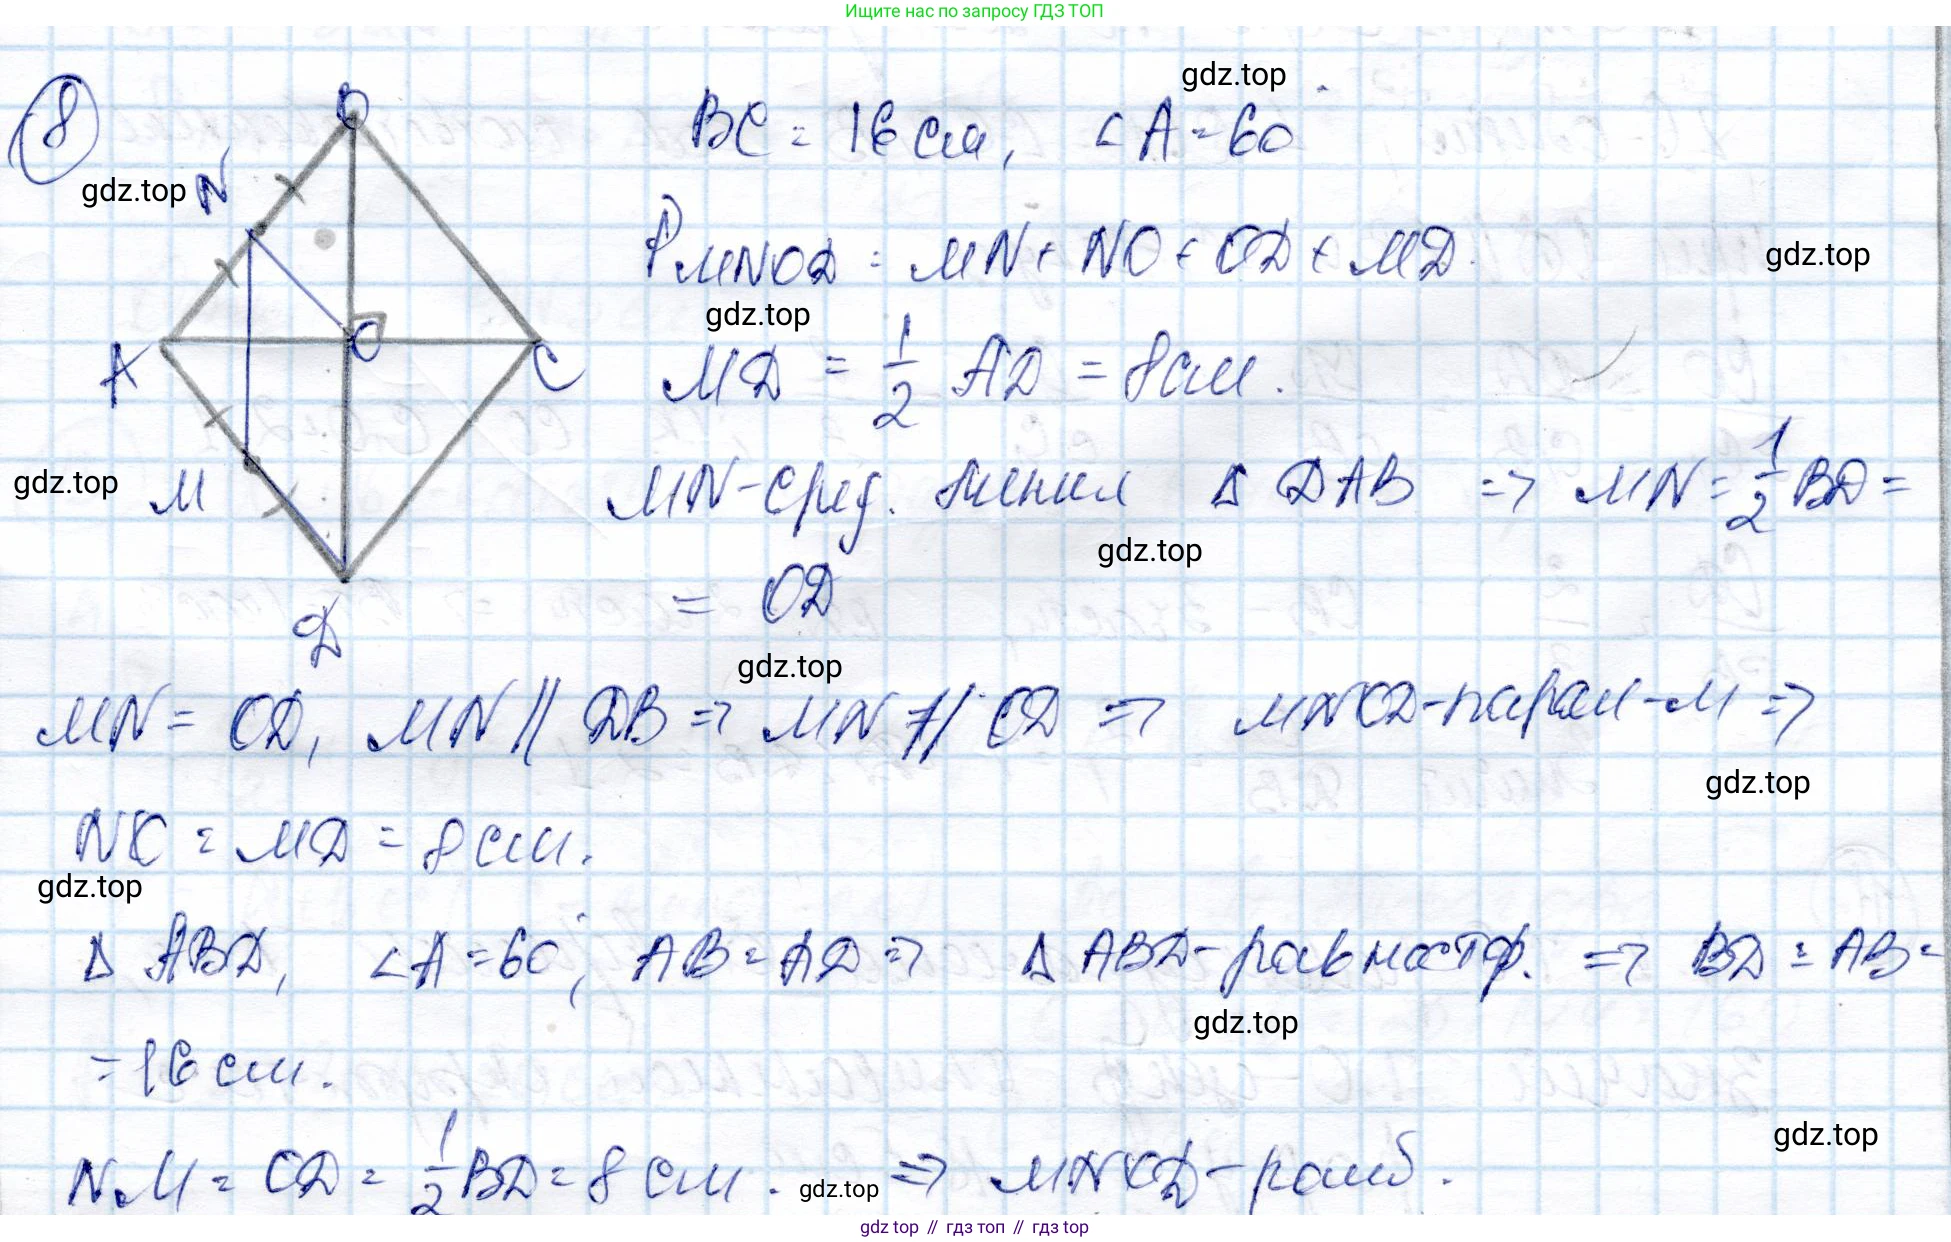 Ищите нас по запросу ГДЗ ТОП
8
B
N
A
O
C
M
D
gdz.top
BC = 16 см, ∠A = 60°
gdz.top
P MNOD = MN + NO + OD + MD.
gdz.top
gdz.top
MD = 1/2 AD = 8 см.
gdz.top
MN - сред. линия Δ DAB => MN = 1/2 BD =
gdz.top
= OD
gdz.top
MN = OD, MN || DB => MN || OD => MNOD - парал-м =>
gdz.top
NO = MD = 8 см.
gdz.top
Δ ABD, ∠A = 60°, AB = AD => Δ ABD - равност. => BD = AB =
gdz.top
= 16 см.
gdz.top
NM = OD = 1/2 BD = 8 см. => MNOD - ромб.
gdz.top
gdz top // гдз топ // гдз top